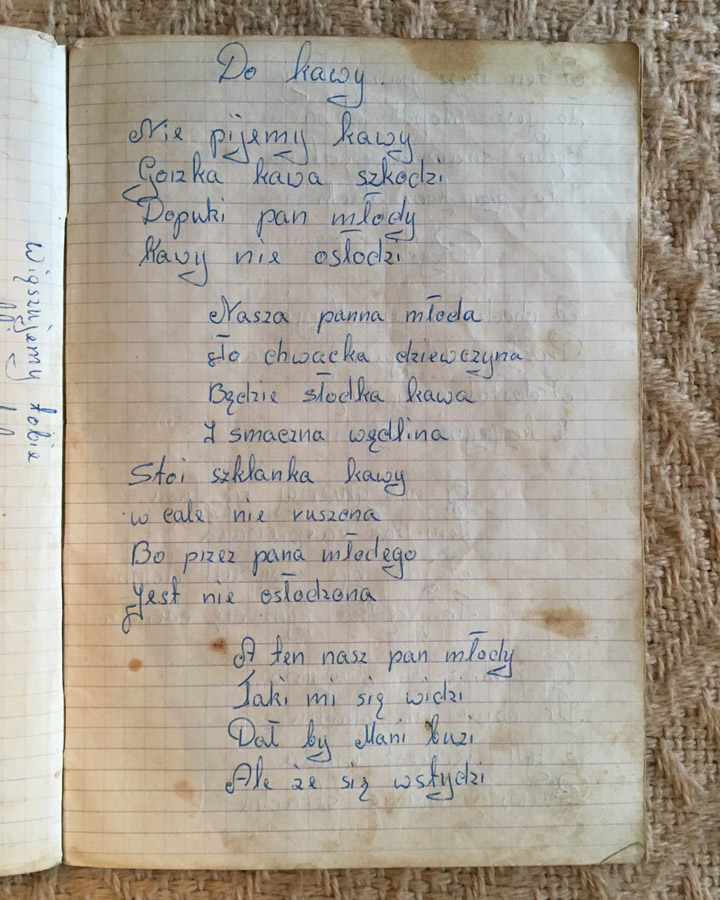 Do kawy.
Nie pijemy kawy
Gorzka kawa szkodzi
Dopuki pan młody
Kawy nie osłodzi
Nasza panna młoda
sło chwacka dziewczyna
Będzie słodka kawa
I smaczna wędlina
Stoi szklanka kawy
w cale nie ruszona
Bo przez pana młodego
Jest nie osłodzona
A ten nasz pan młody
Taki mi się widzi
Dał by Mani buzi
Ale że się wstydzi
Wiąszujemy tobie